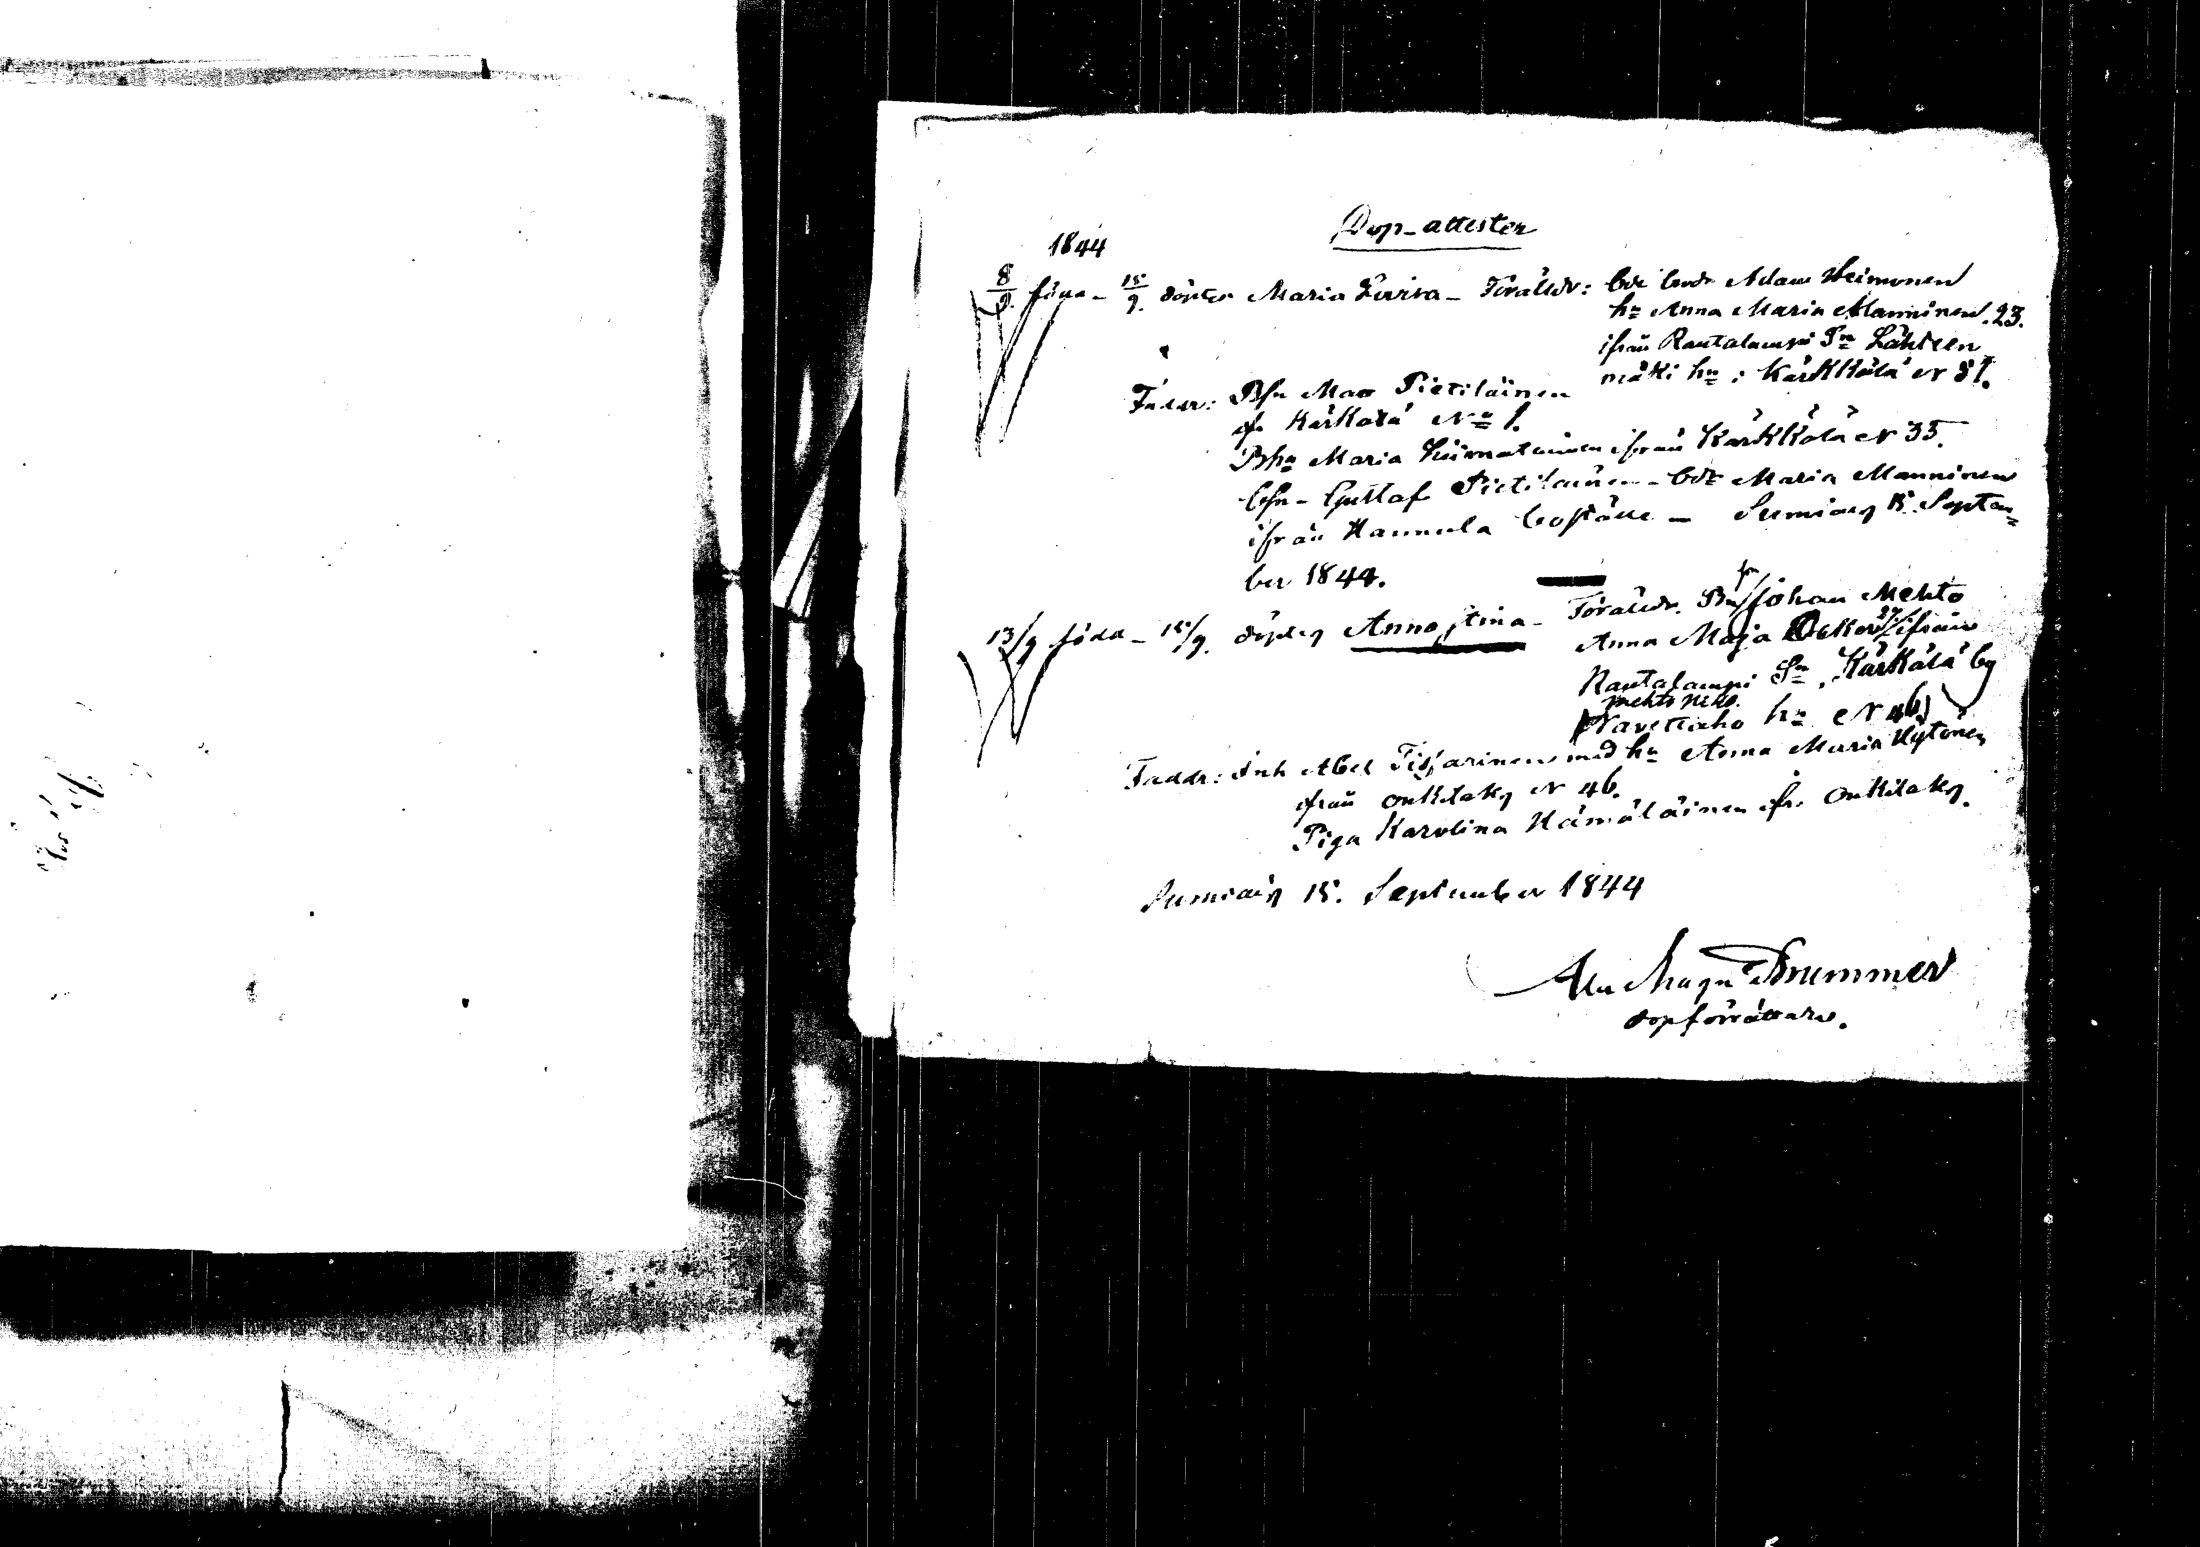 Dop-attester
1844
8/9. född - 15/9. döptes Maria Lovisa - Föräldr: Adam Heimonen
hn Anna Maria Manninen. 23.
ifrån Rautalampi Sn Lähteen
mäki hn i Kärkkälä N 81.
Faddr: Bfn Mats Pietiläinen
fr Kärkkälä No 1.
Bhn Maria ifrån Kärkkälä N 35.
Gustaf Pietiläinen - Maria Manninen
ifrån Hannula boställe - Sumiais 15. Septem=
ber 1844.
13/9 född - 15/9. döptes Anna Stina - Föräldr. Johan Mehto
Anna Maja 27/ ifrån
Rautalampi Sn, Kärkälä by
Mehto
Navettaho hn N 46.
Faddr: Inh Abel med hn Anna Maria Hytönen
ifrån Onkilaky N 46.
Piga Karolina Hämäläinen ifr. Onkilaky.
Sumiais 15. September 1844
Brummer
dopförrättare.